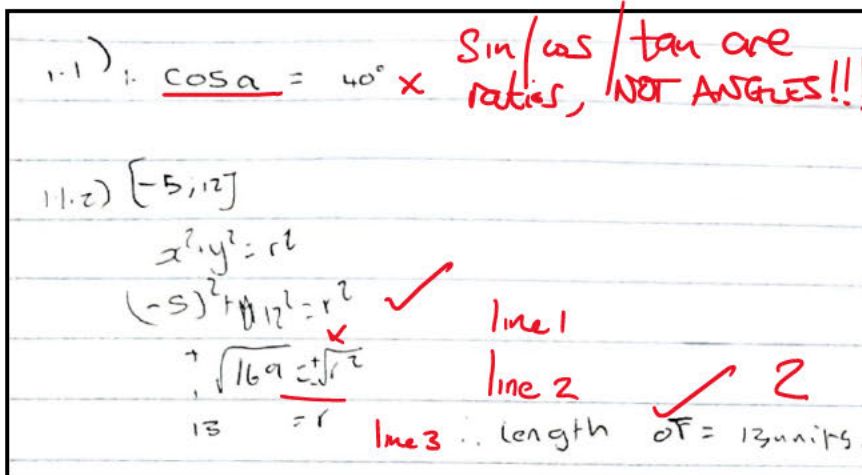 1.1) : cos a = 40° × Sin/cos/tan are
ratios, NOT ANGLES!!!
1.1.2) [-5;12]
x².y² = r²
(-5)² + 12² = r² ✓
line 1
± √169 = ± √r² ×
line 2 ✓ 2
13 = r line 3 ∴ length OT = 13 units.